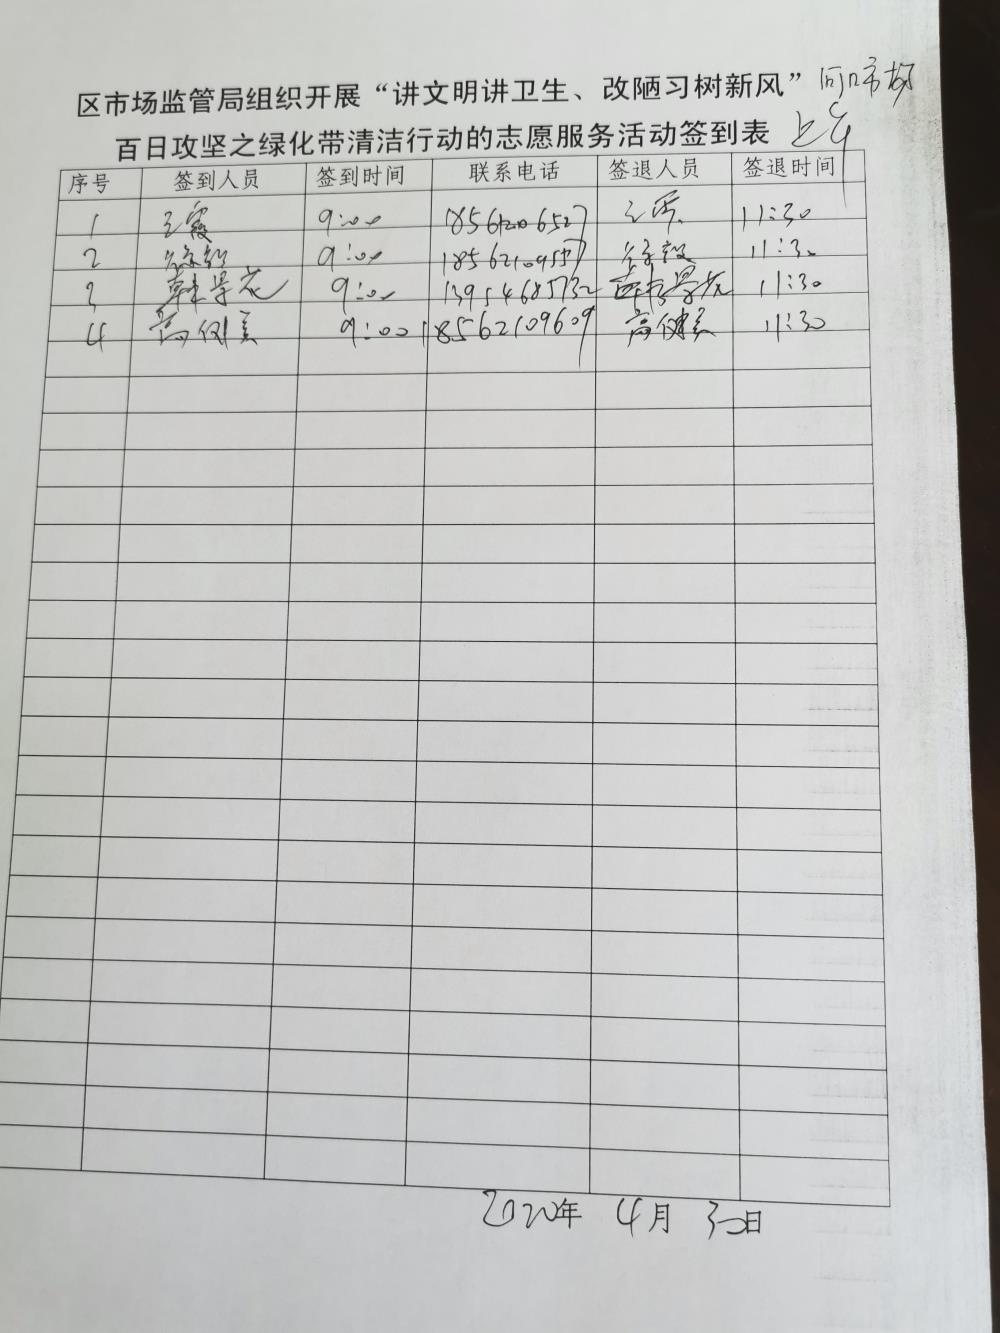 区市场监管局组织开展“讲文明讲卫生、改陋习树新风”河口市场
百日攻坚之绿化带清洁行动的志愿服务活动签到表 上午
序号 签到人员 签到时间 联系电话 签退人员 签退时间
1 王霞 9:00 18561206527 王霞 11:30
2 9:00 11:30
3 韩景花 9:00 13954685732 韩景花 11:30
4 高健美 9:00 18562109609 高健美 11:30
2020年 4月 30日